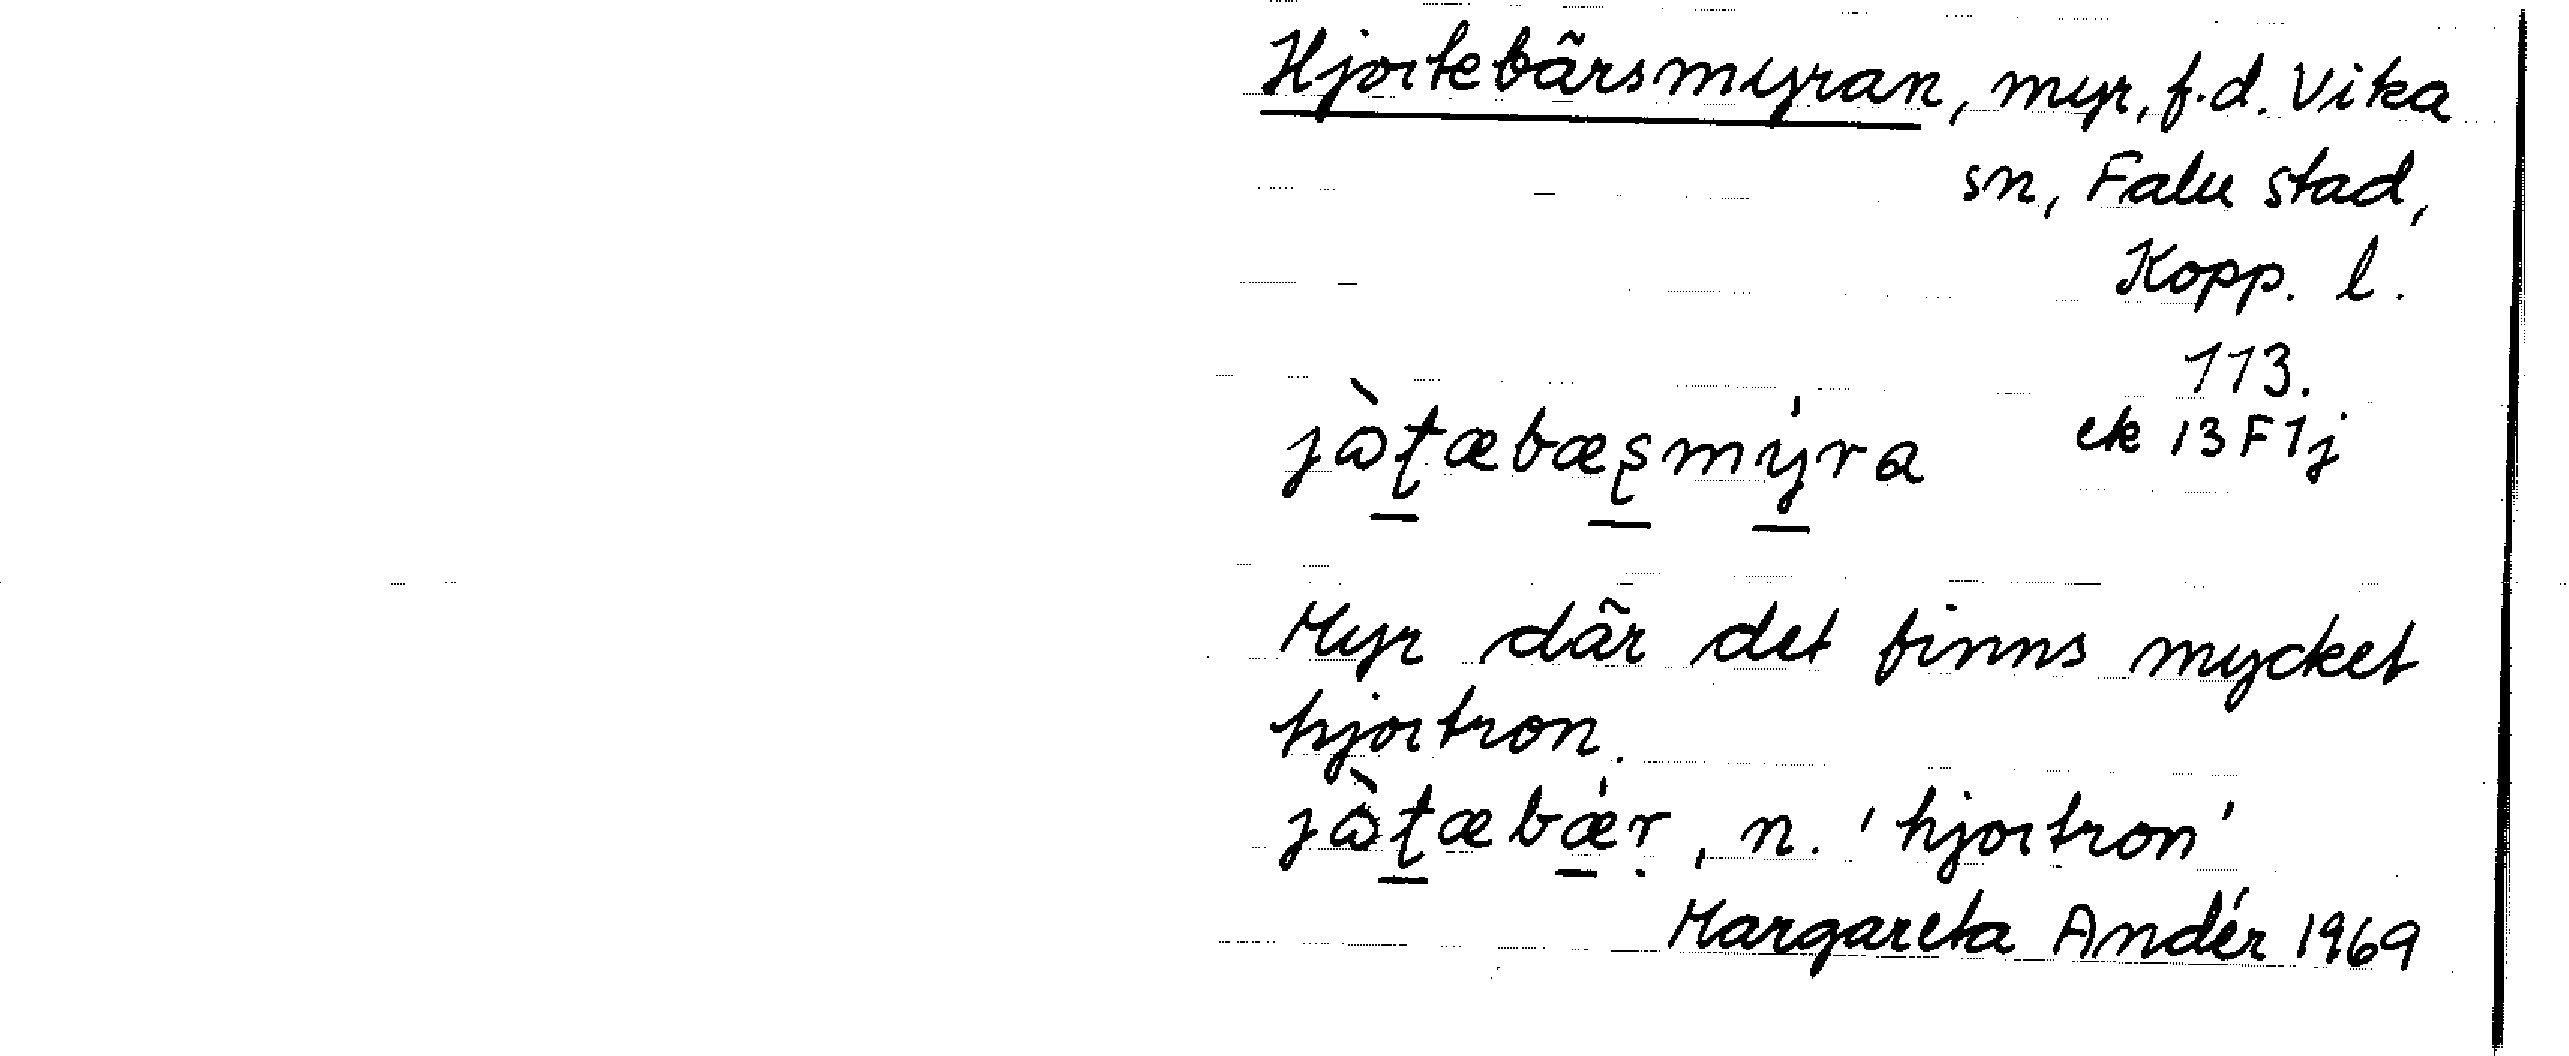 Hjortebärsmyran, myr, f.d. Vika
sn, Falu stad,
Kopp. l.
113.
jɷ̀ʈæbæʂmýra ek 13F1j
Myr där det finns mycket
hjortron.
jɷ̀ʈæbǽṛ, n. 'hjortron'
Margareta Andér 1969